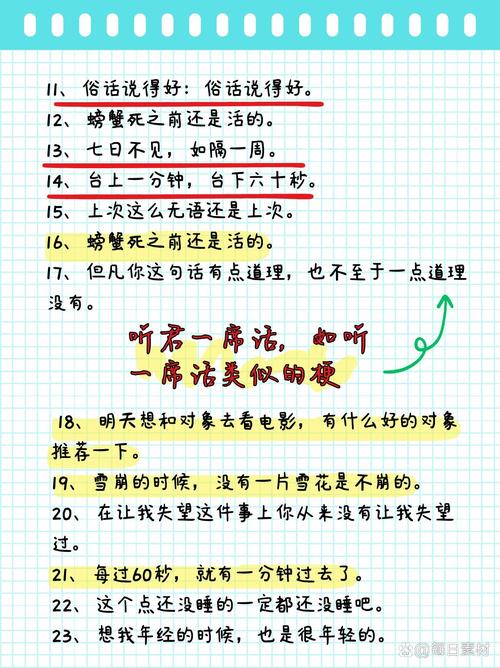 11、俗话说得好：俗话说得好。
12、螃蟹死之前还是活的。
13、七日不见，如隔一周。
14、台上一分钟，台下六十秒。
15、上次这么无语还是上次。
16、螃蟹死之前还是活的。
17、但凡你这句话有点道理，也不至于一点道理
没有。
听君一席话，如听
一席话类似的梗
18、明天想和对象去看电影，有什么好的对象
推荐一下。
19、雪崩的时候，没有一片雪花是不崩的。
20、在让我失望这件事上你从来没有让我失望
过。
21、每过60秒，就有一分钟过去了。
22、这个点还没睡的一定都还没睡吧。
23、想我年经的时候，也是很年轻的。
@每日素材